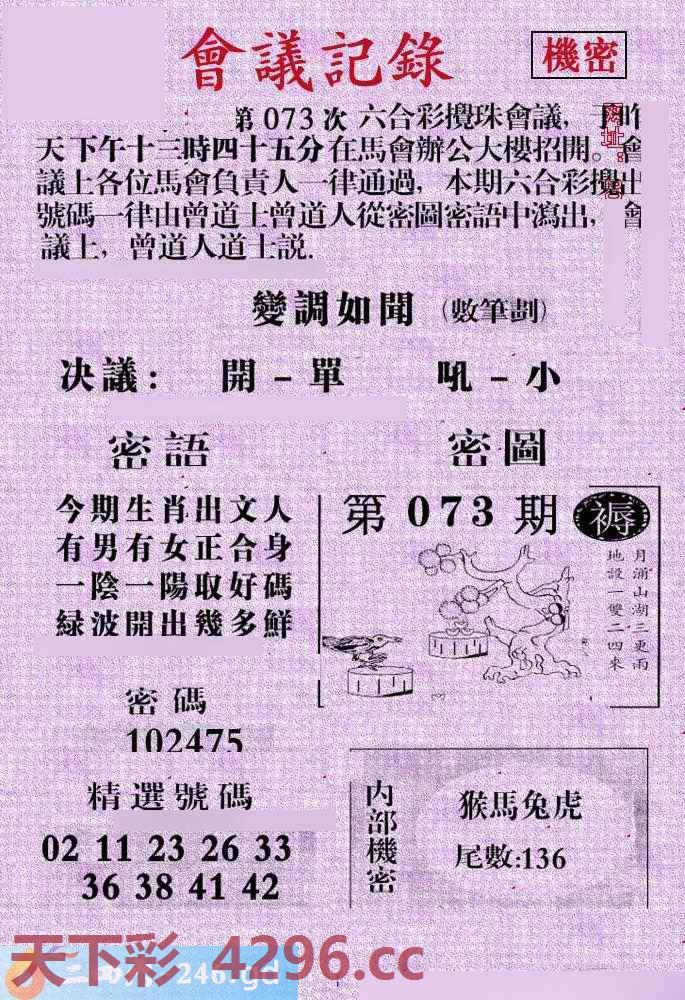 會議記錄
機密
第073次六合彩攪珠會議,下昨
天下午十三時四十五分在馬會辦公大樓招開。會
議上各位馬會負責人一律通過,本期六合彩攪出
號碼一律由曾道士曾道人從密圖密語中瀉出,會
議上,曾道人道士説.
變調如聞(數筆劃)
決議:開-單 吼-小
密語
今期生肖出文人
有男有女正合身
一陰一陽取好碼
緑波開出幾多鮮
密圖
第073期
褥
月涌山湖三更雨
地設一雙二四來
密碼
102475
精選號碼
02 11 23 26 33
36 38 41 42
内部機密
猴馬兔虎
尾數:136
天下彩 4296.cc
246.gd